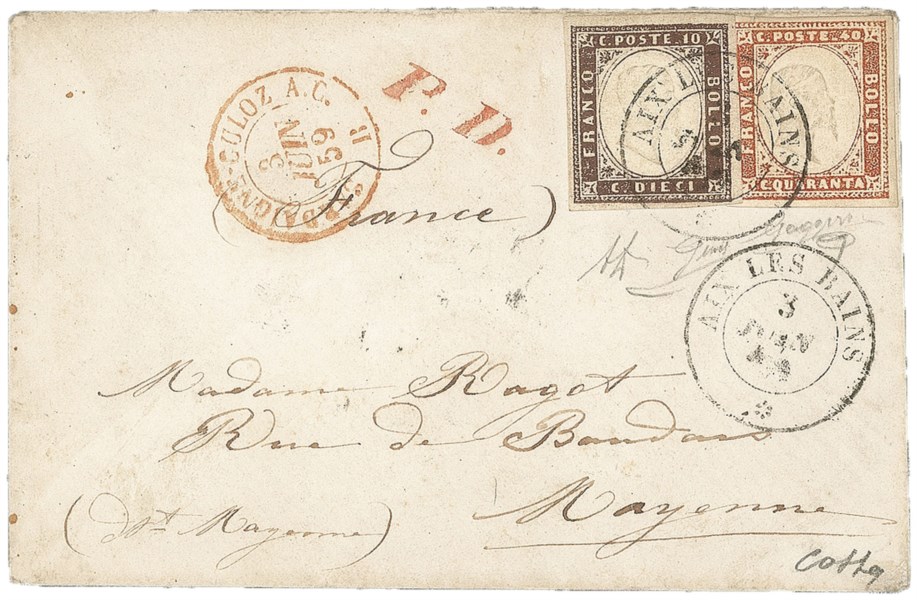 C. POSTE. 10
FRANCO
BOLLO
C. DIECI
C. POSTE. 40
FRANCO
BOLLO
C. QUARANTA
AIX LES BAINS
P. D.
CULOZ A.C.
3
JUIN
59
(France)
AIX LES BAINS
3
JUIN
Madame Ragot
Rue de Baudais
Mayenne
(dpt Mayenne)